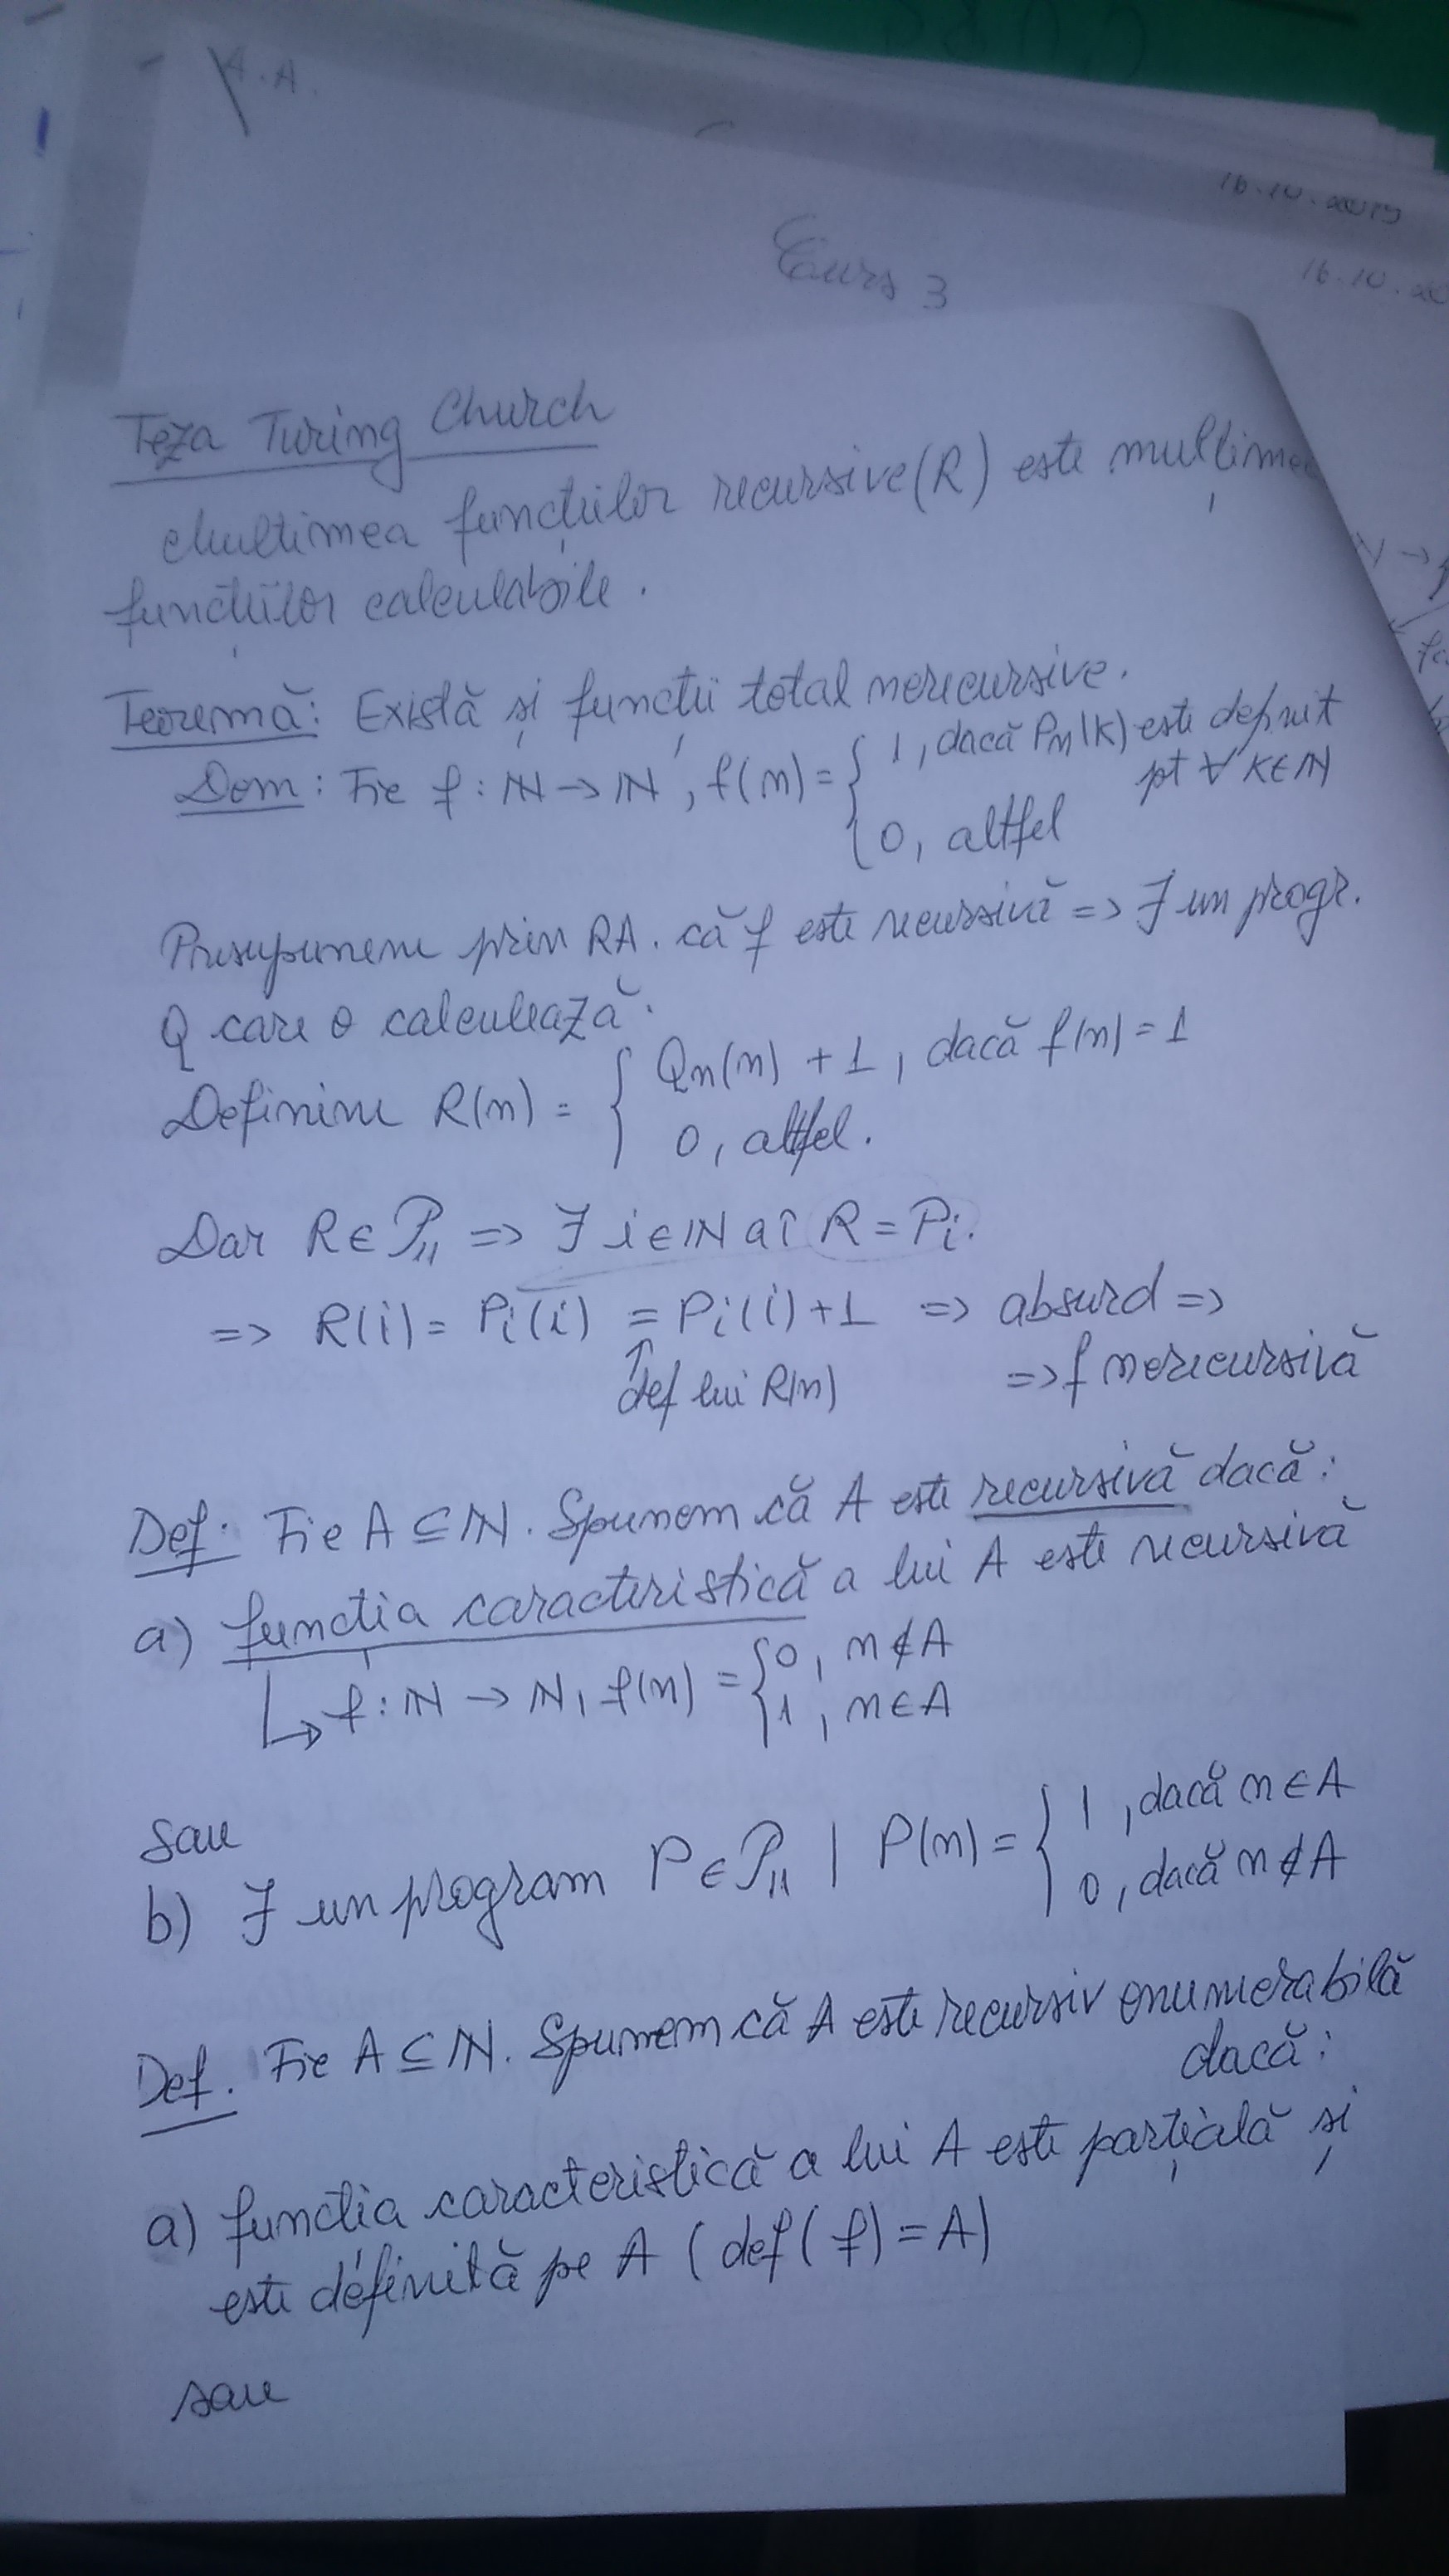 A.A.
16.10.2019
16.10.20
Curs 3
Teza Turing Church
Mulțimea funcțiilor recursive (R) este mulțimea
funcțiilor calculabile.
Teoremă: Există și funcții total nerecursive.
Dem: Fie f : ℕ → ℕ, f(n) = { 1, dacă Pn(k) este definit
pt ∀ k∈ℕ
0, altfel
Presupunem prin RA. că f este recursivă => ∃ un progr.
Q care o calculează.
Definim R(n) = { Qn(n) + 1, dacă f(n) = 1
0, altfel.
Dar R ∈ 𝒫₁₁ => ∃ i ∈ ℕ aî R = Pi.
=> R(i) = Pi(i) = Pi(i)+1 => absurd =>
↑ def lui R(n) => f nerecursivă
Def. Fie A ⊆ ℕ. Spunem că A este recursivă dacă:
a) funcția caracteristică a lui A este recursivă
↳ f : ℕ → ℕ, f(n) = { 0, n ∉ A
1, n ∈ A
sau
b) ∃ un program P ∈ 𝒫₁₁ | P(n) = { 1, dacă n ∈ A
0, dacă n ∉ A
Def. Fie A ⊆ ℕ. Spunem că A este recursiv enumerabilă
dacă:
a) funcția caracteristică a lui A este parțială și
este definită pe A (def(f) = A)
sau